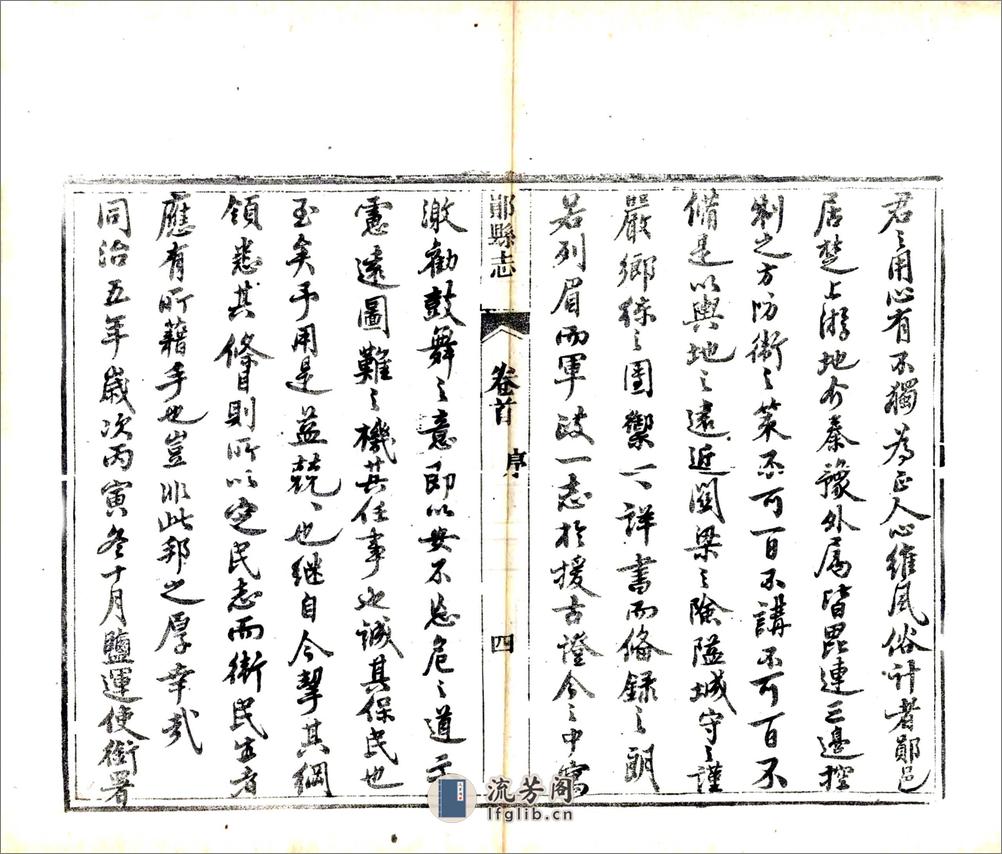 君之用心有不獨為正人心維風俗計者鄖邑
居楚上游地介秦豫外屬皆毘連三邊控
制之方防衛之策不可一日不講不可一日不
備是以輿地之遠近關梁之險隘城守之謹
嚴鄉練之團禦一一詳書而備錄之朗
若列眉而軍政一志於援古證今之中寓
鄖縣志
卷首
序
四
激勸鼓舞之意即以安不忘危之道示
憲遠圖難之機其任事也誠其保民也
至矣予用是益兢兢也繼自今挈其綱
領悉其條目則所以定民志而衛民生者
應有所藉手也豈非此邦之厚幸哉
同治五年歲次丙寅冬十月鹽運使銜署
流芳阁
lfglib.cn